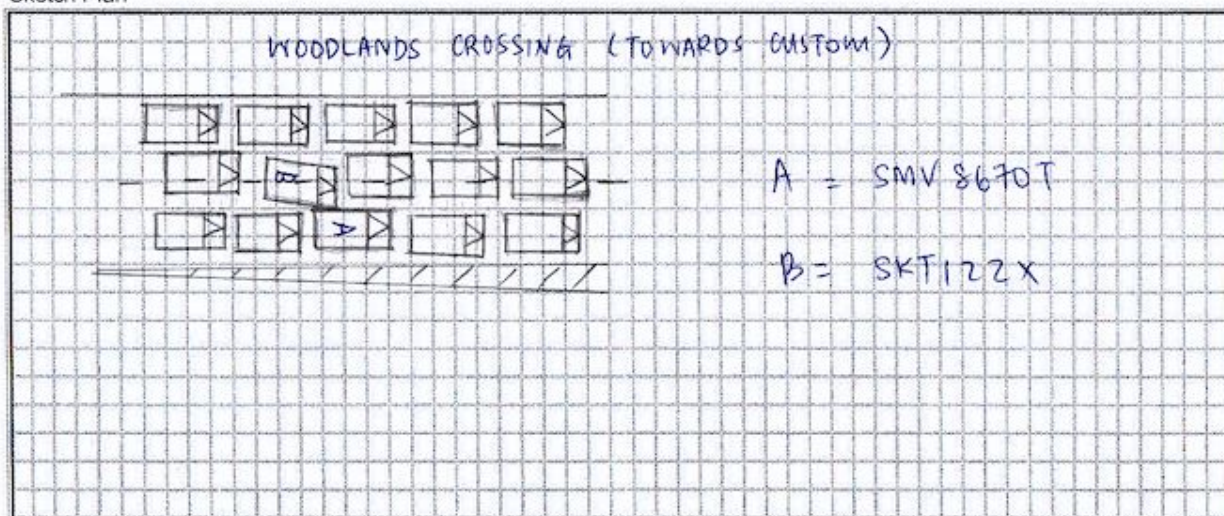 WOODLANDS CROSSING (TOWARDS CUSTOM)
B
A
A = SMV 8670T
B = SKT122X